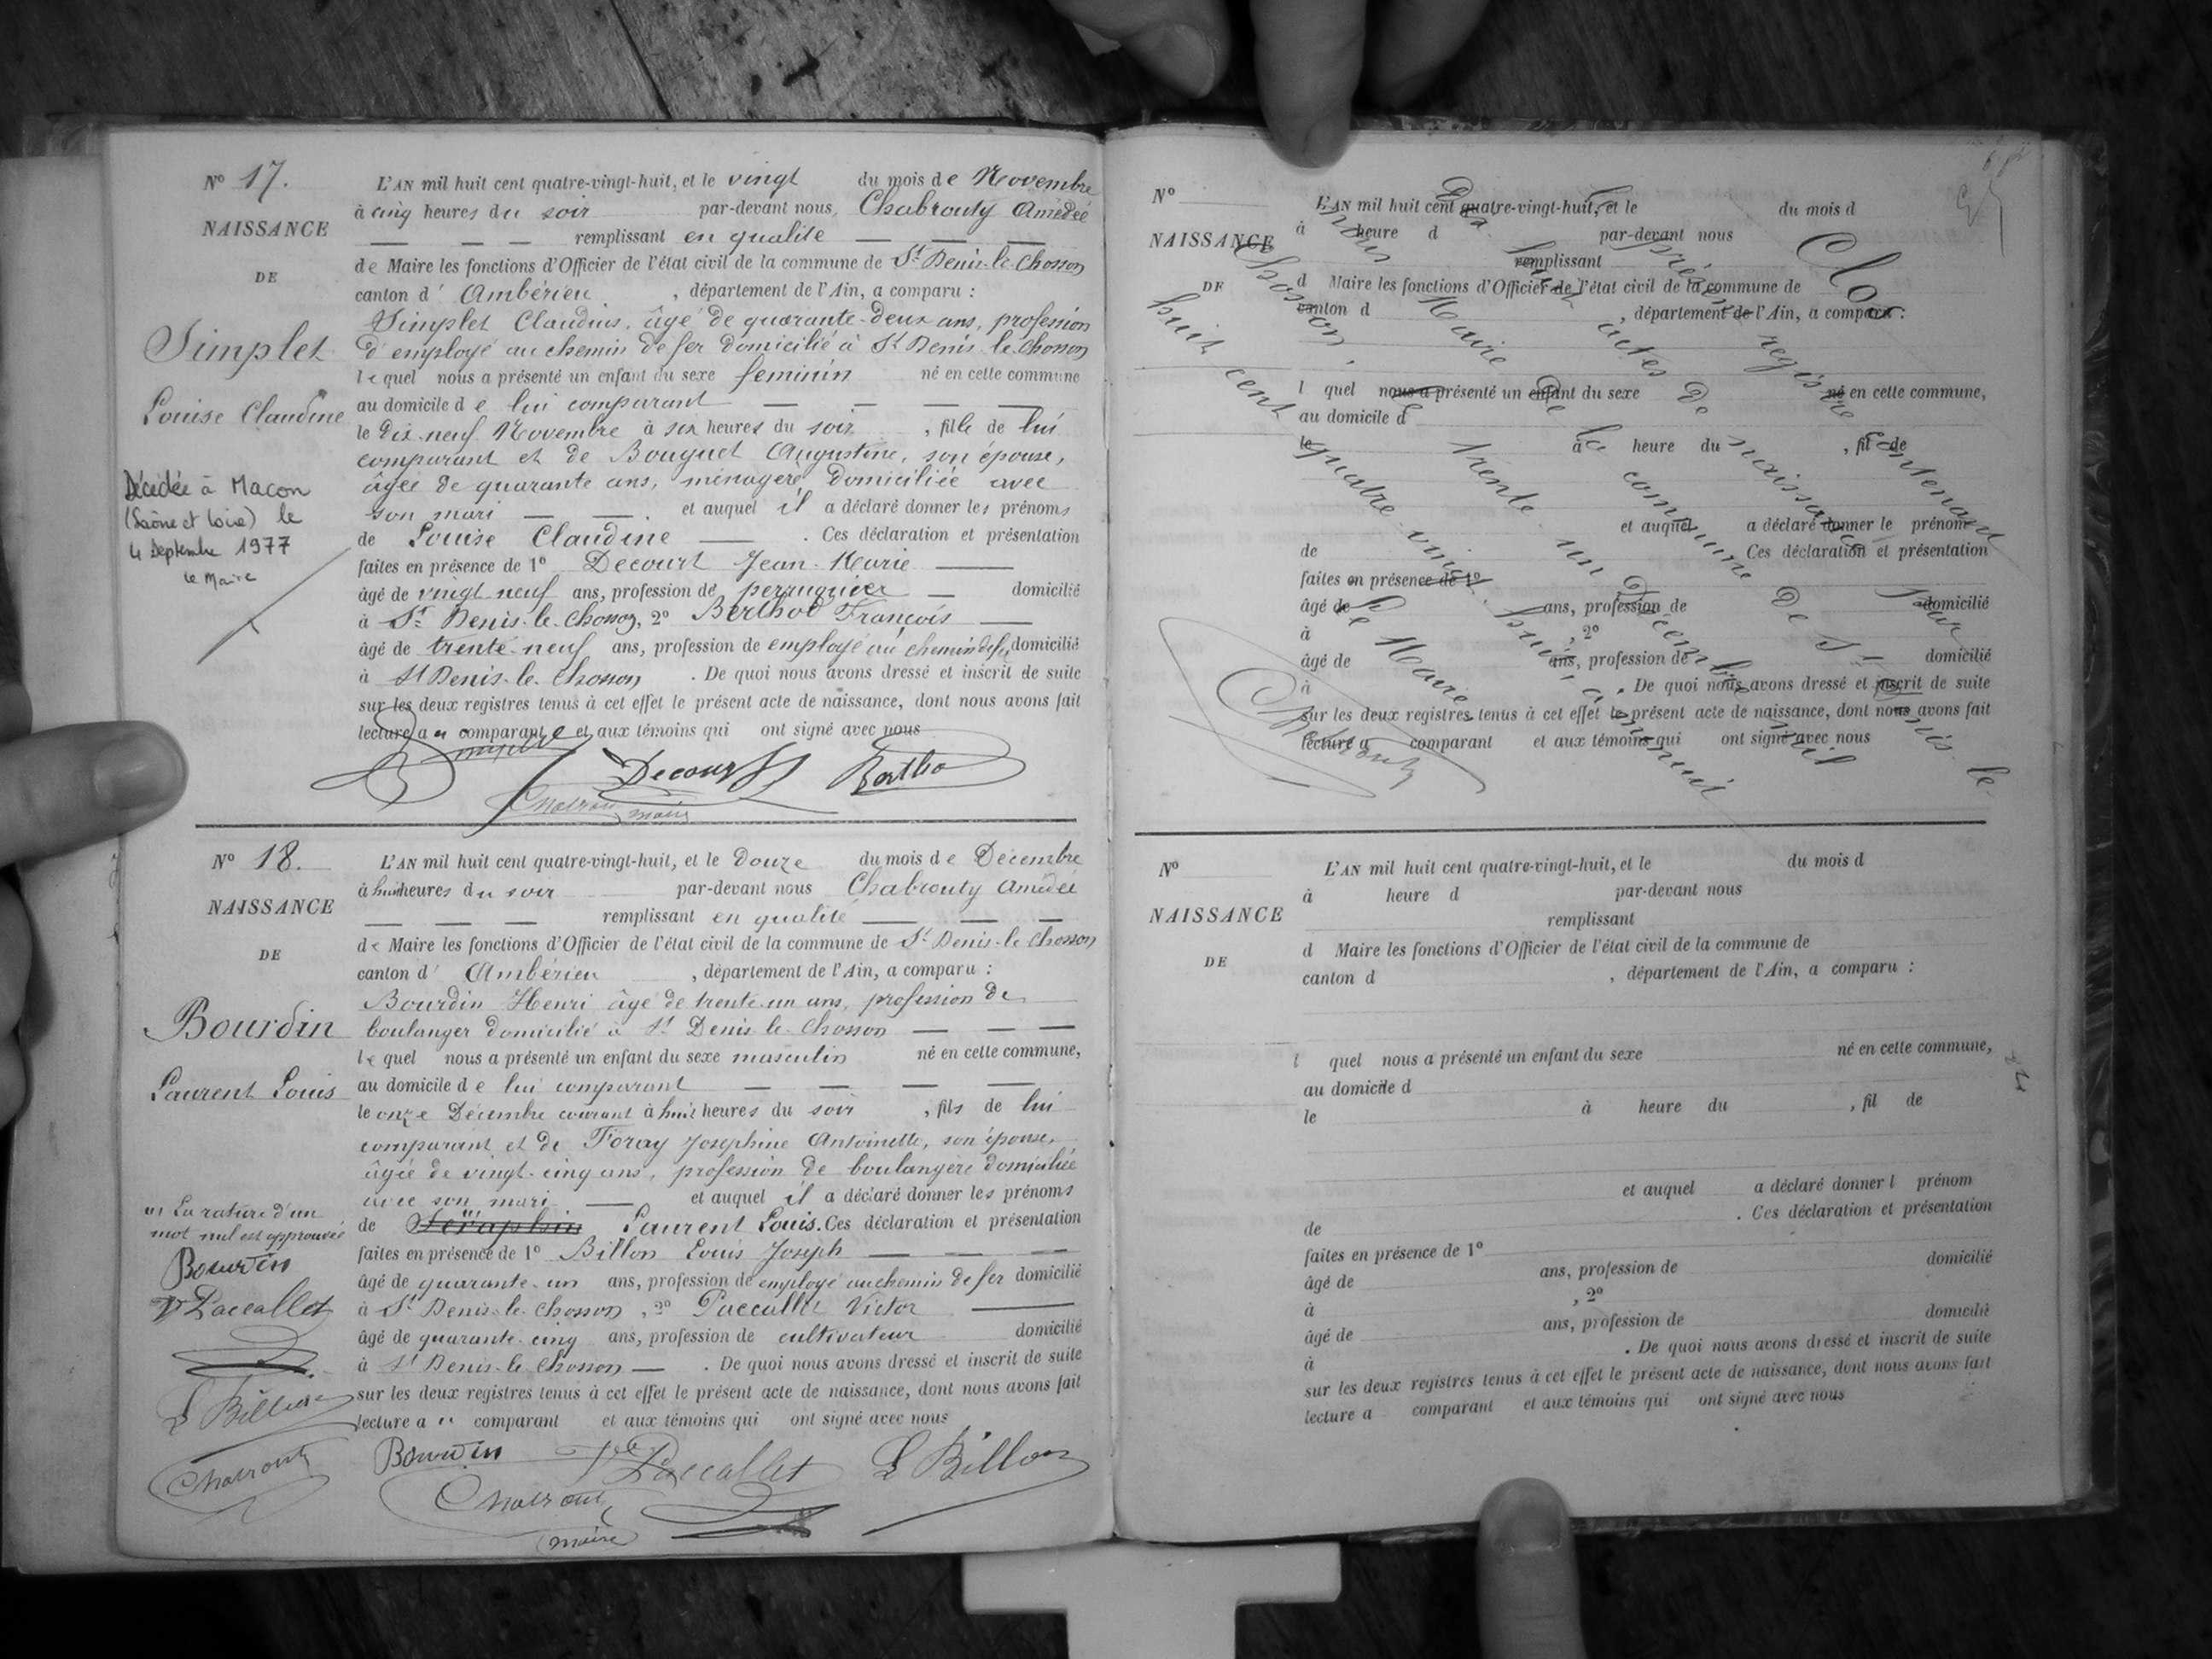 N° 17.
NAISSANCE
DE
Simplet
Louise Claudine
Décédée à Macon
(Saône et Loire) le
4 Septembre 1977
le Maire
L'AN mil huit cent quatre-vingt-huit, et le vingt du mois de Novembre
à cinq heures du soir par-devant nous, Chabrouty Amédée
remplissant en qualité
de Maire les fonctions d'Officier de l'état civil de la commune de St Denis-le-Chosson
canton d' Ambérieu, département de l'Ain, a comparu :
Simplet Claudius, âgé de quarante-deux ans, profession
d'employé au chemin de fer domicilié à St Denis-le-Chosson
lequel nous a présenté un enfant du sexe féminin né en cette commune
au domicile de lui comparant
le dix-neuf Novembre à six heures du soir, fille de lui
comparant et de Bouquet Augustine, son épouse,
âgée de quarante ans, ménagère domiciliée avec
son mari et auquel il a déclaré donner les prénoms
de Louise Claudine. Ces déclaration et présentation
faites en présence de 1° Decourt Jean-Marie
âgé de vingt neuf ans, profession de perruquier domicilié
à St Denis-le-Chosson, 2° Berthod François
âgé de trente-neuf ans, profession de employé au chemin de fer domicilié
à St Denis-le-Chosson. De quoi nous avons dressé et inscrit de suite
sur les deux registres tenus à cet effet le présent acte de naissance, dont nous avons fait
lecture au comparant et aux témoins qui ont signé avec nous
Simplet Decourt Bertho
maire
N° 18.
NAISSANCE
DE
Bourdin
Laurent Louis
La rature d'un
mot nul est approuvée
Bourdin
V Paccallet
L Billon
L'AN mil huit cent quatre-vingt-huit, et le douze du mois de Décembre
à huit heures du soir par-devant nous Chabrouty Amédée
remplissant en qualité
de Maire les fonctions d'Officier de l'état civil de la commune de St Denis-le-Chosson
canton d' Ambérieu, département de l'Ain, a comparu :
Bourdin Henri âgé de trente-un ans, profession de
boulanger domicilié à St Denis-le-Chosson
lequel nous a présenté un enfant du sexe masculin né en cette commune,
au domicile de lui comparant
le onze Décembre courant à huit heures du soir, fils de lui
comparant et de Foray Josephine Antoinette, son épouse,
âgée de vingt-cinq ans, profession de boulangère domiciliée
avec son mari et auquel il a déclaré donner les prénoms
de Séraphin Laurent Louis. Ces déclaration et présentation
faites en présence de 1° Billon Louis Joseph
âgé de quarante-un ans, profession de employé au chemin de fer domicilié
à St Denis-le-Chosson, 2° Paccallet Victor
âgé de quarante-cinq ans, profession de cultivateur domicilié
à St Denis-le-Chosson. De quoi nous avons dressé et inscrit de suite
sur les deux registres tenus à cet effet le présent acte de naissance, dont nous avons fait
lecture au comparant et aux témoins qui ont signé avec nous
Bourdin Vr Paccallet L Billon
maire
N°
NAISSANCE
DE
L'AN mil huit cent quatre-vingt-huit, et le du mois d
à heure d par-devant nous
remplissant
d Maire les fonctions d'Officier de l'état civil de la commune de
canton d , département de l'Ain, a comparu :
l quel nous a présenté un enfant du sexe né en cette commune,
au domicile d
le à heure du , fil de
et auquel a déclaré donner le prénom
de Ces déclaration et présentation
faites en présence de 1°
âgé de ans, profession de domicilié
à , 2°
âgé de ans, profession de domicilié
à . De quoi nous avons dressé et inscrit de suite
sur les deux registres tenus à cet effet le présent acte de naissance, dont nous avons fait
lecture a comparant et aux témoins qui ont signé avec nous
Clos
le présent registre contenant
dix huit actes de naissance par
nous Maire de la commune de St Denis le
Chosson, le trente un Décembre mil
huit cent quatre-vingt-huit, à minuit
Le Maire
Chabrouty
N°
NAISSANCE
DE
L'AN mil huit cent quatre-vingt-huit, et le du mois d
à heure d par-devant nous
remplissant
d Maire les fonctions d'Officier de l'état civil de la commune de
canton d , département de l'Ain, a comparu :
l quel nous a présenté un enfant du sexe né en cette commune,
au domicile d
le à heure du , fil de
et auquel a déclaré donner l prénom
de . Ces déclaration et présentation
faites en présence de 1°
âgé de ans, profession de domicilié
à , 2°
âgé de ans, profession de domicilié
à . De quoi nous avons dressé et inscrit de suite
sur les deux registres tenus à cet effet le présent acte de naissance, dont nous avons fait
lecture a comparant et aux témoins qui ont signé avec nous